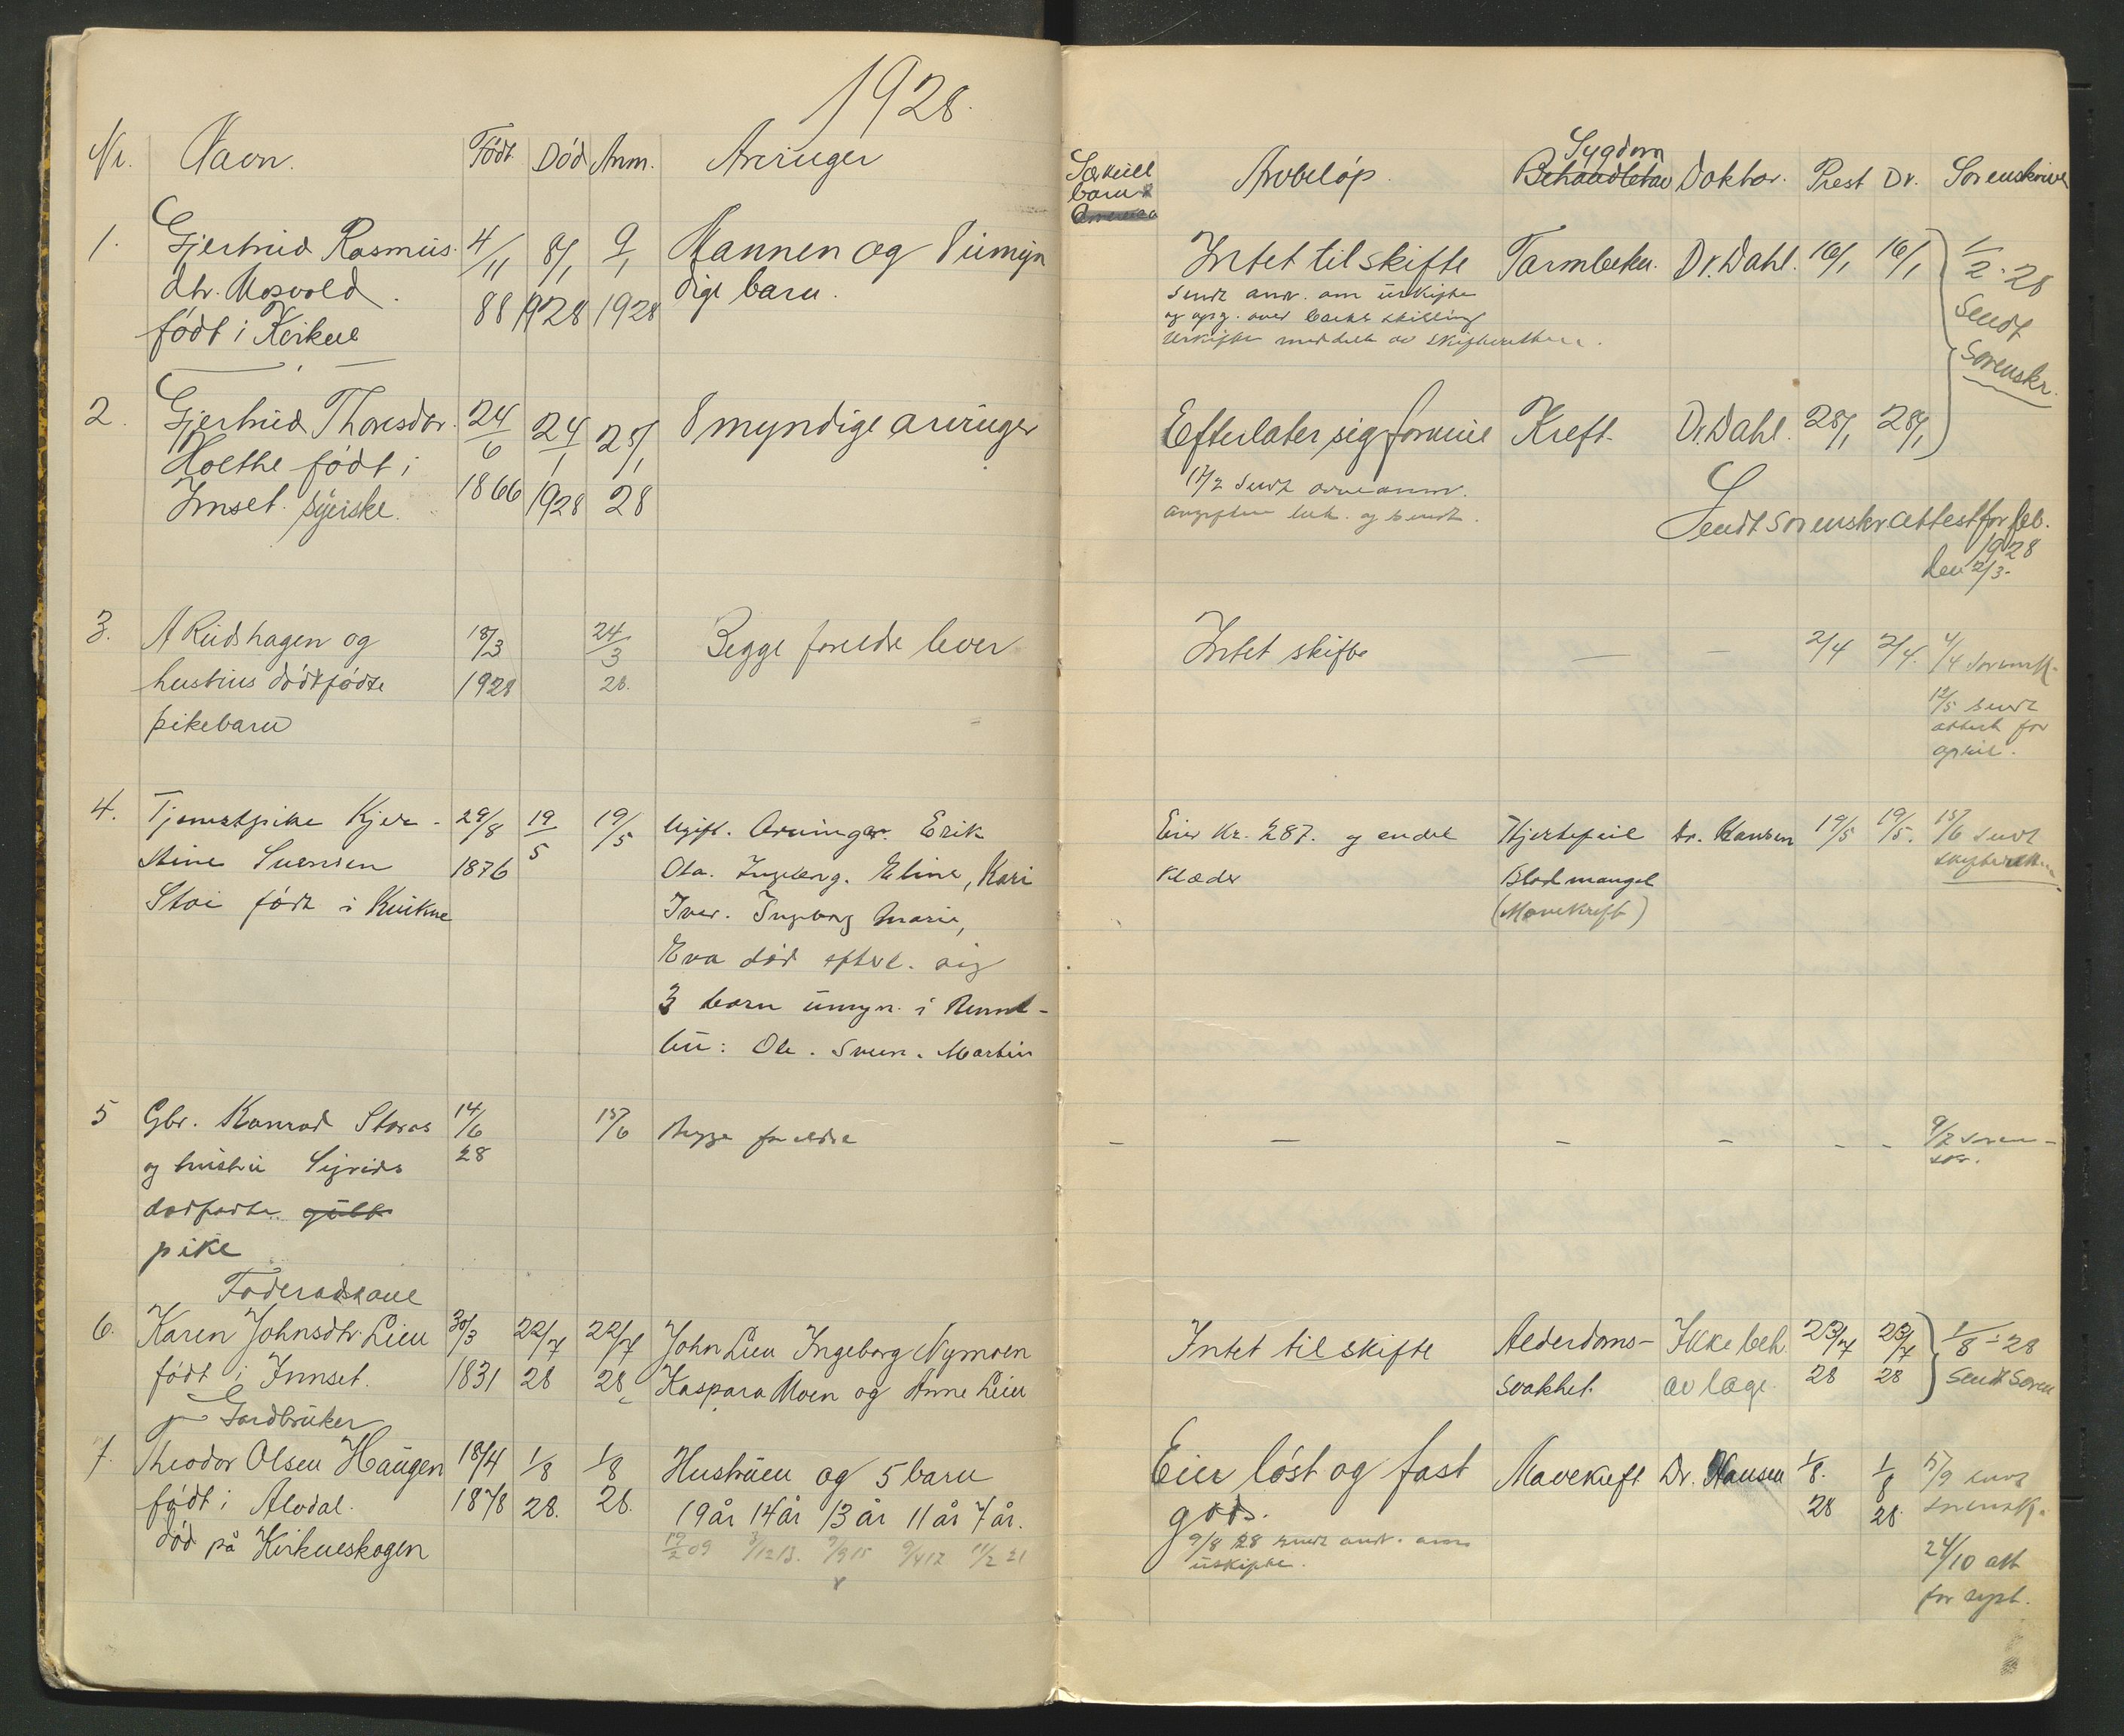 1928.
Nr. Navn. Født Død Anm. Arvinger
Særkull Arvbeløp. Sygdom
barn Behandlet av Doktor. Prest Dr. Sorenskriver
1. Gjertrud Rasmus- 4/11 8/1 9/1 Mannen og 8 umyn
dtr. Mosvold. 88 1928 1928 dige barn.
født i Kvikne
Intet til skifte Tarmbeten. Dr. Dahl. 16/1 16/1 1/2-28
sendt anv. om uskifte Sendt
og opg. over barnas skilling Sorenskr.
Uskifte meddelt av skifteretten.
2. Gjertrud Thoresdtr. 24/6 24/1 25/1 8 myndige arvinger
Holthe født i 1866 1928 28
Innset. syerske.
Efterlater sig formue Kreft. Dr. Dahl. 28/1 28/1
17/2 sendt arveanm.
avgiften bet. og sendt.
Sendt sorenskr attest for feb.
1928
den 2/3.
3. A Rudshagen og 18/3 24/3 Begge foreldre lever
hustrus dødfødte 1928 28.
pikebarn
Intet skifte — — 2/4 2/4. 4/4 sorensk.
12/5 sendt
attest for
april.
4. Tjenestpike Kjer- 29/8 19/5 19/5 Ugift. Arvinger. Erik
stine Svendsen 1876 Ola. Ingebrg. Eline, Kari
Stai født i Kvikne Iver. Ingeborg Marie,
Eva død efterl. sig
3 barn umyn. i Renne-
bu: Ole. Sven. Martin
Eier Kr. 287. og endel Hjertefeil Dr. Hansen 19/5 19/5. 15/6 sendt
klæder Blodmangel skifteretten
(Mavekreft)
5 Gbr. Konrad Storås 14/6 15/6 Begge foreldre
og hustru Sigrids 28
dødfødte gutt
pike
— — — — - - 9/7 soren-
skr.
Føderådskone
6. Karen Johnsdtr. Lien 30/3 22/7 22/7 John Lien Ingeborg Nymoen
født i Innset. 1831 28 28 Kaspara Moen og Anne Lien
Intet til skifte Alderdoms- Ikke beh. 23/7 23/7 1/8-28
svakhet. av læge. 28 28 Sendt Soren
Gardbruker
7. Theodor Olsen Haugen 18/4 1/8 1/8 Hustruen og 5 barn
født i Alvdal. 1878 28. 28. 19år 14år 13 år 11 år 7 år.
død på Kvikneskogen 19/2 09 3/12 13. 9/9 15 9/4 17 11/2 21
Eier løst og fast Mavekreft Dr. Hansen 1/8. 1/8 5/9 sendt
gods. 28 28 sorensk.
9/8 28 sendt anv. om
uskifte.
24/10 att
for sept.